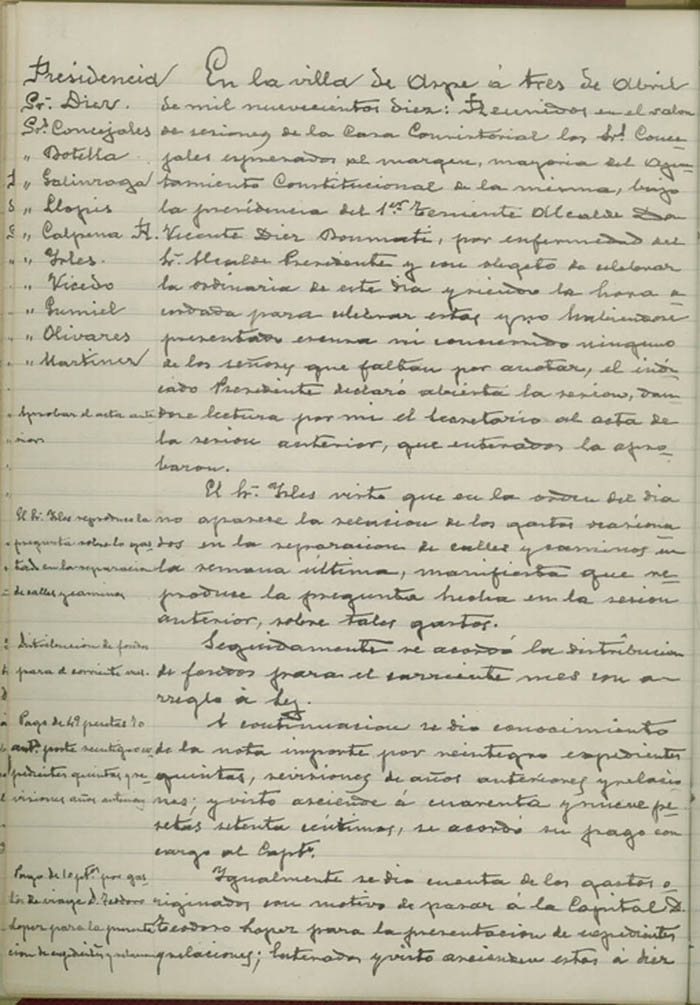 Presidencia
Sr. Diez.
Sres. Concejales
" Botella
" Galinsoga
" Llopis
" Calpena A.
" Irles.
" Vicedo
" Gumiel
" Olivares
" Martinez
En la villa de Aspe á tres de Abril
de mil nuevecientos diez: Reunidos en el salon
de sesiones de la Casa Consistorial los Sres. Conce-
jales espresados al margen, mayoria del Ayun-
tamiento Constitucional de la misma, bajo
la presidencia del 1er. Teniente Alcalde Don
Vicente Diez Bonmati, por enfermedad del
Sr. Alcalde Presidente y con objeto de celebrar
la ordinaria de este dia y siendo la hora a-
cordada para celebrar estas y no habiendose
presentado escusa ni concurrido ninguno
de los señores que faltan por anotar, el indi-
cado Presidente declaró abierta la sesion, dan-
Aprobar el acta ante-
rior
dose lectura por mi el Secretario al acta de
la sesion anterior, que enterados la apro-
baron.
El Sr. Irles visto que en la orden del dia
El Sr. Irles reproduce la
pregunta sobre lo gas-
tado en la reparacion
de calles y caminos
no aparece la relacion de los gastos ocasiona-
dos en la reparacion de calles y caminos en
la semana última, manifiesta que re-
produce la pregunta hecha en la sesion
anterior, sobre tales gastos.
Distribucion de fondos
para el corriente mes.
Seguidamente se acordó la distribucion
de fondos para el corriente mes con a-
rreglo á ley.
Pago de 49 pesetas 70
cents. porte reintegro ex-
pedientes quintas y re-
visiones años anteriores
A continuacion se dio conocimiento
de la nota importe por reintegro expedientes
quintas, revisiones de años anteriores y relacio-
nes; y visto asciende á cuarenta y nueve pe-
setas setenta céntimos, se acordó su pago con
cargo al Capto.
Pago de 10 pts. por gas-
tos de viaje D. Teodoro
Lopez para la presenta-
cion de expedientes y relaciones
Igualmente se dio cuenta de los gastos o-
riginados con motivo de pasar á la Capital D.
Teodoro Lopez para la presentacion de expedientes
y relaciones; Enterados y visto ascienden estos á diez